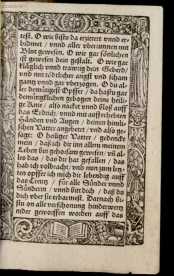 test. O wie bistu da erzittert vnnd er=
bidmet / vnnd aller vberunnen mit
Blut gewesen. O wie gar söriglichen
ist gewesen dein gestalt. O wie gar
kläglich vnnd traurig dein Geberd/
vnd mit tödtlicher angst vnd schmer
tzen vnnd gar vberzogen. O du al=
ler demütigest Opffer / da bastu gar
demütigklichen gebogen deine heili=
ge Knie / also nacket vnnd bloß auff
das Erdrich / vnnd mit auffgehebten
Händen vnd Augen / deinen himli=
schen Vatter angebettet / vnd also ge=
sagt: O heiliger Vatter / gedenck
men / daß ich dir inn allem meinem
Leben bin gehorsam gewesen / vñ al=
les das / das dir hat gefallen / das
hab ich volbracht. vnb nun zum letz=
ten opffer ich mich dir lebendig auff
das Creutz / für alle Sünder vnnd
Sünderin / vnnd bitt dich / daß du
dich vber sie erbarmest. Darnach bi=
stu an alle verstehnung hinderwertz
nider geworffen worden auff das